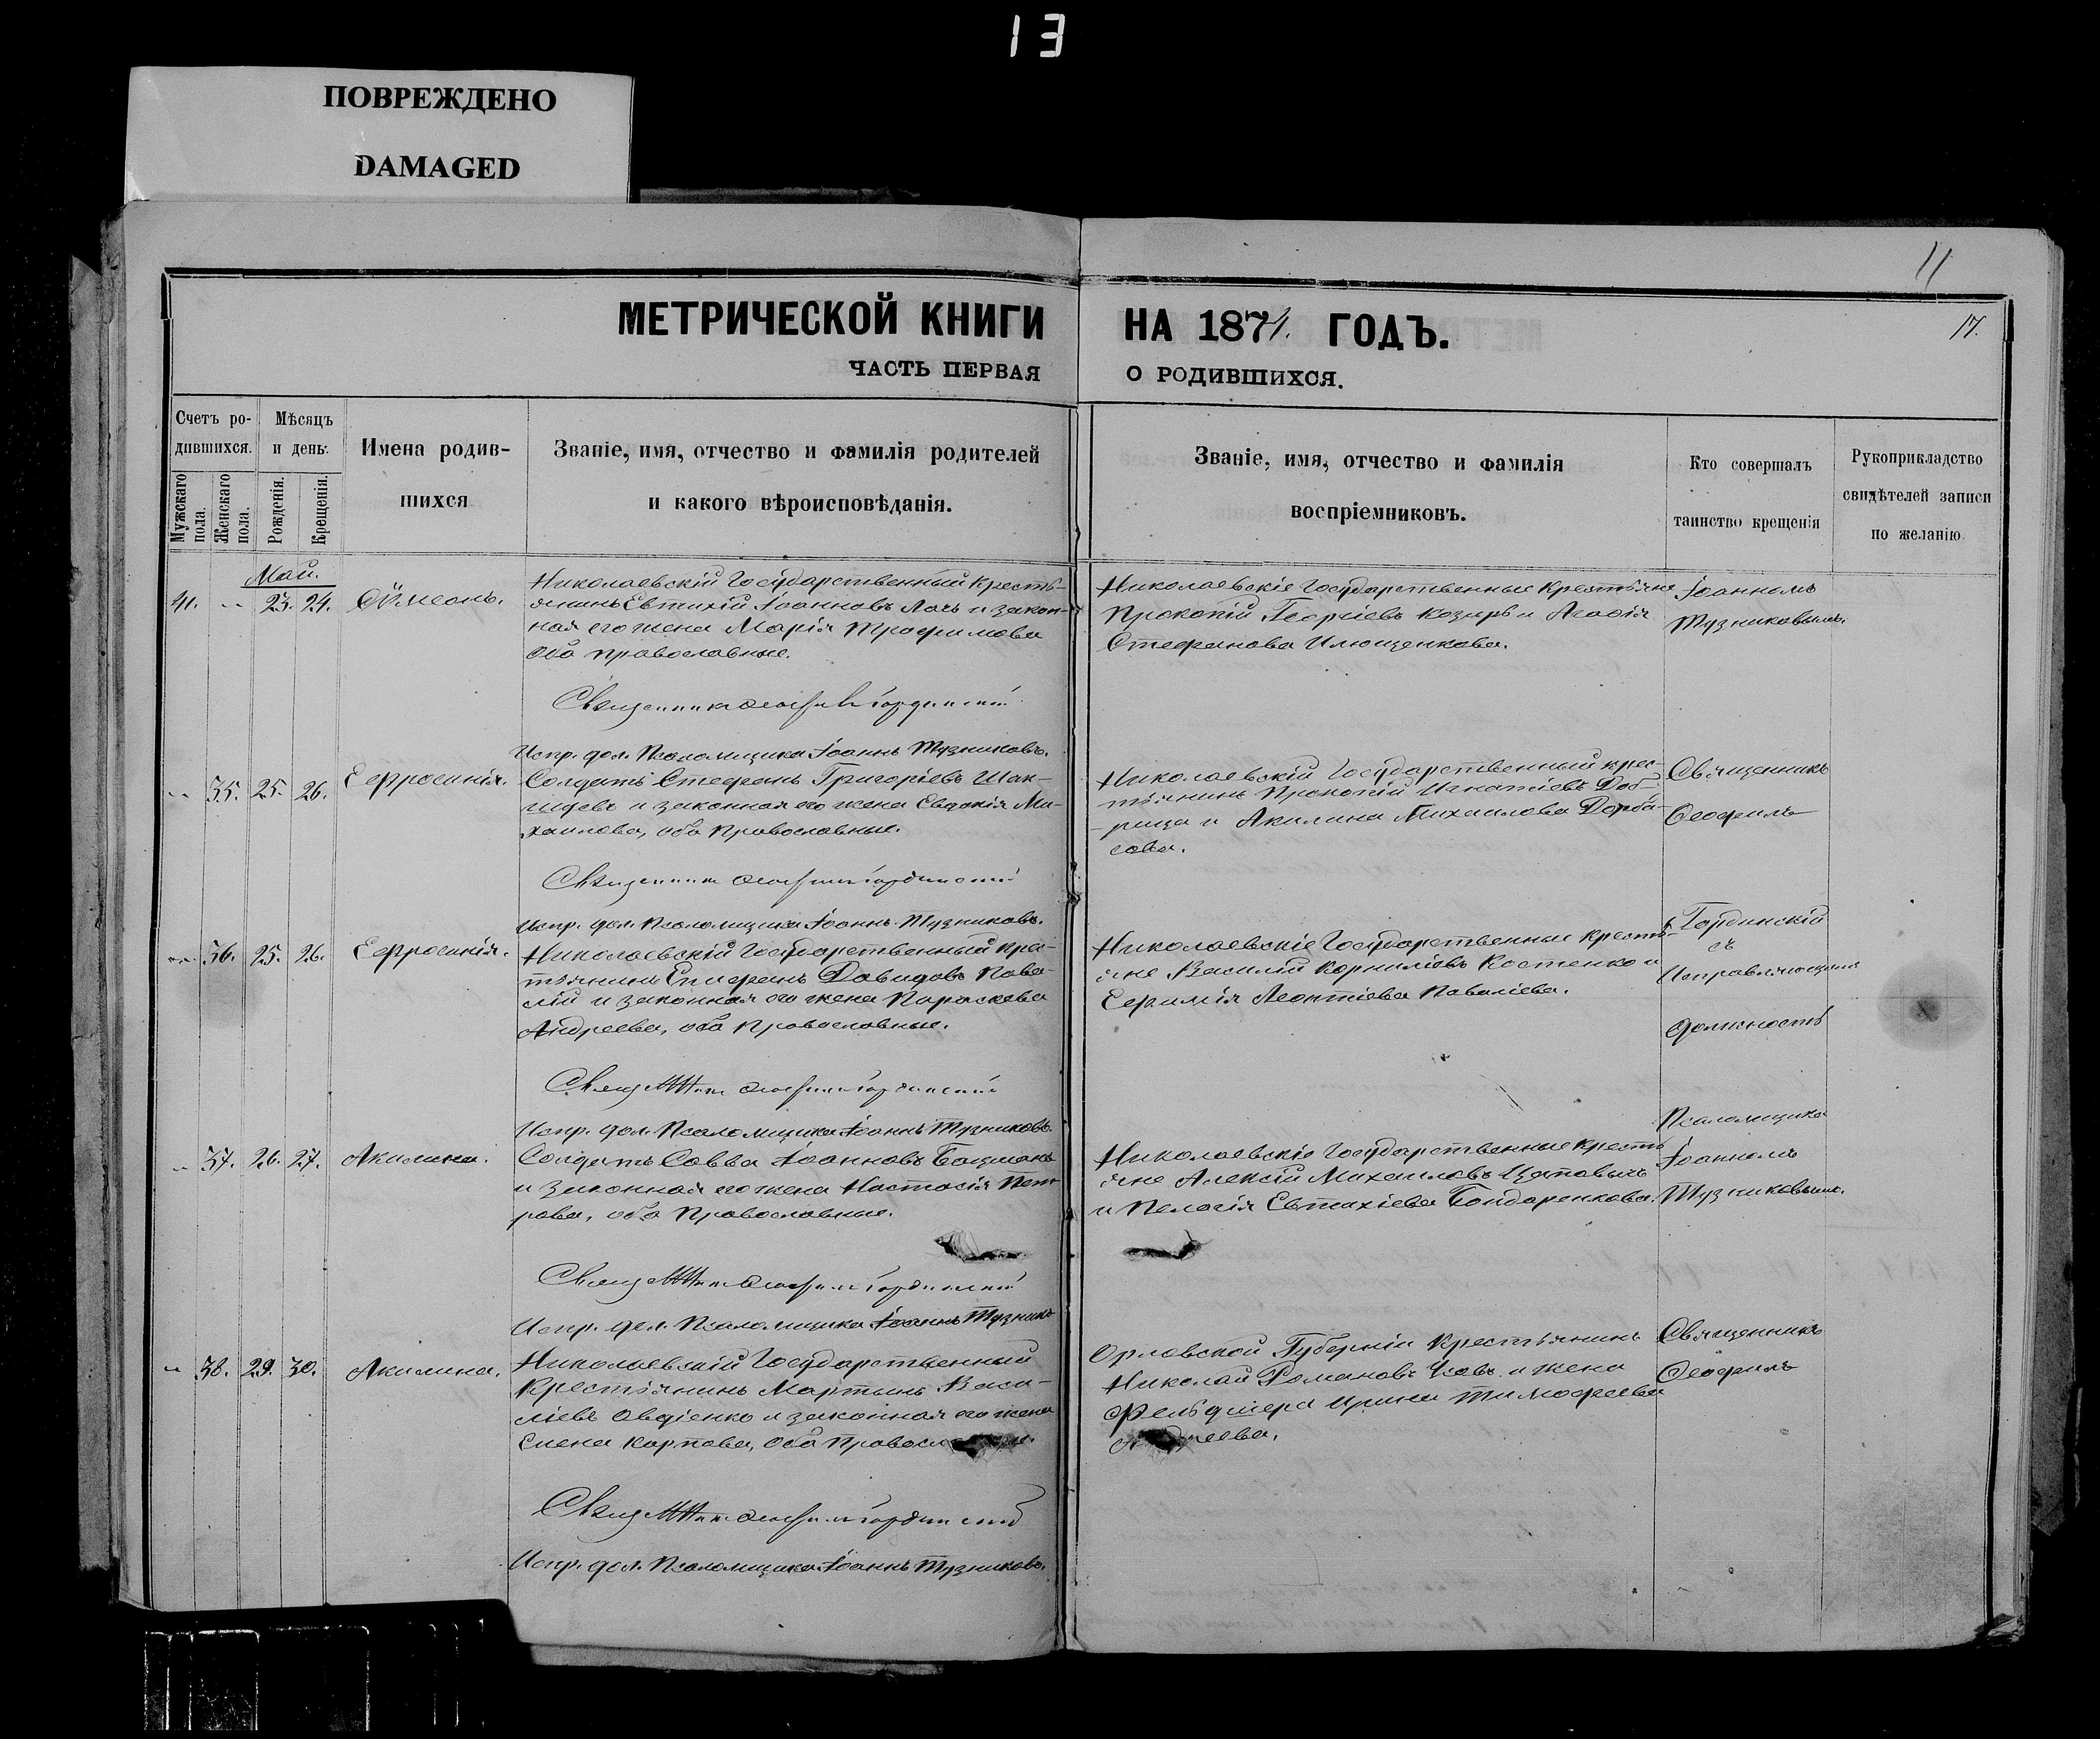 13
ПОВРЕЖДЕНО
DAMAGED
11
17.
МЕТРИЧЕСКОЙ КНИГИ НА 1871. ГОДЪ.
ЧАСТЬ ПЕРВАЯ О РОДИВШИХСЯ.
Счетъ ро-
дившихся.
Мужскаго пола.
Женскаго пола.
Мѣсяцъ
и день:
Рожденія.
Крещенія.
Имена родив-
шихся
Званіе, имя, отчество и фамилія родителей
и какого вѣроисповѣданія.
Званіе, имя, отчество и фамилія
воспріемниковъ.
Кто совершалъ
таинство крещенія
Рукоприкладство
свидѣтелей записи
по желанію
Май.
41. 23. 24. Сѵмеонъ.
Николаевскій Государственный кресть-
янинъ Евтихій Іоанновъ и закон-
ная его жена Марія Трофимова
оба православные.
Священникъ Гординскій
Испр. дол. Псаломщика Іоаннъ Тузниковъ.
Николаевскіе Государственные крестьяне
Прокопій Георгіевъ Козырь и Агафія
Стефанова Илющенкова.
Іоанномъ
Тузниковымъ.
35. 25. 26. Ефросинія.
Солдатъ Стефанъ Григоріевъ
и законная его жена Евдокія Ми-
хаилова, оба православные.
Священникъ Гординскій
Испр. дол. Псаломщика Іоаннъ Тузниковъ.
Николаевскій Государственный крес-
тьянинъ Прокопій Игнатіевъ Доб-
рица и Акилина Михаилова Дорба-
сова.
Священникъ
Ѳеофилъ
36. 25. 26. Ефросинія.
Николаевскій Государственный крес-
тьянинъ Епифанъ Давидовъ Пова-
лій и законная его жена Параскева
Андреева, оба православные.
Гординскій
Испр. дол. Псаломщика Іоаннъ Тузниковъ.
Николаевскіе Государственные кресть-
яне Василій Корниліевъ Костенко и
Ефимія Леонтіева Поваліева.
Гординскій
съ
Исправляющимъ
должность
Псаломщика
37. 26. 27. Акилина.
Солдатъ Савва Іоанновъ Боцманъ
и законная его жена Настасія Пет-
рова, оба православные.
Гординскій
Испр. дол. Псаломщика Іоаннъ Тузников
Николаевскіе Государственные кресть
яне Алексій Михаиловъ
и Пелагія Евтихіева Бондаренкова.
Іоанномъ
Тузниковымъ.
38. 29. 30. Акилина.
Николаевскій Государственный
крестьянинъ Мартынъ Васи-
ліевъ Овдіенко и законная его жена
Елена Карпова, оба правосл
Гординскій
Испр. дол. Псаломщика Іоаннъ Тузниковъ.
Орловской Губерніи крестьянинъ
Николай Романовъ и жена
Фельдшера Ирина Тимофеева
Священникъ
Ѳеофилъ